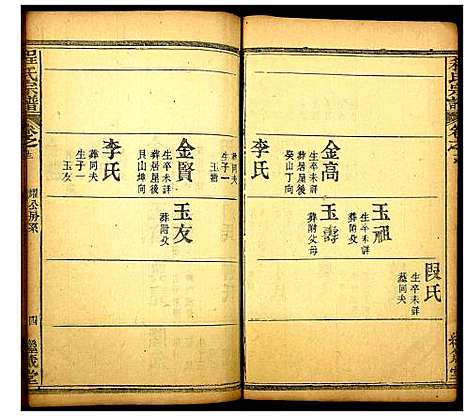 程氏宗譜
卷之
段氏
生卒未詳
葬同夫
玉祖
生卒未詳
葬附父
金高
生卒未詳
葬居屋後
癸山丁向
玉壽
葬附父母
李氏
葬同夫
生子一
玉壽
金賢
生卒未詳
葬居屋後
艮山坤向
玉友
葬附父
李氏
葬同夫
生子一
玉友
程氏宗譜
卷之
耀公房系
四
繼成堂